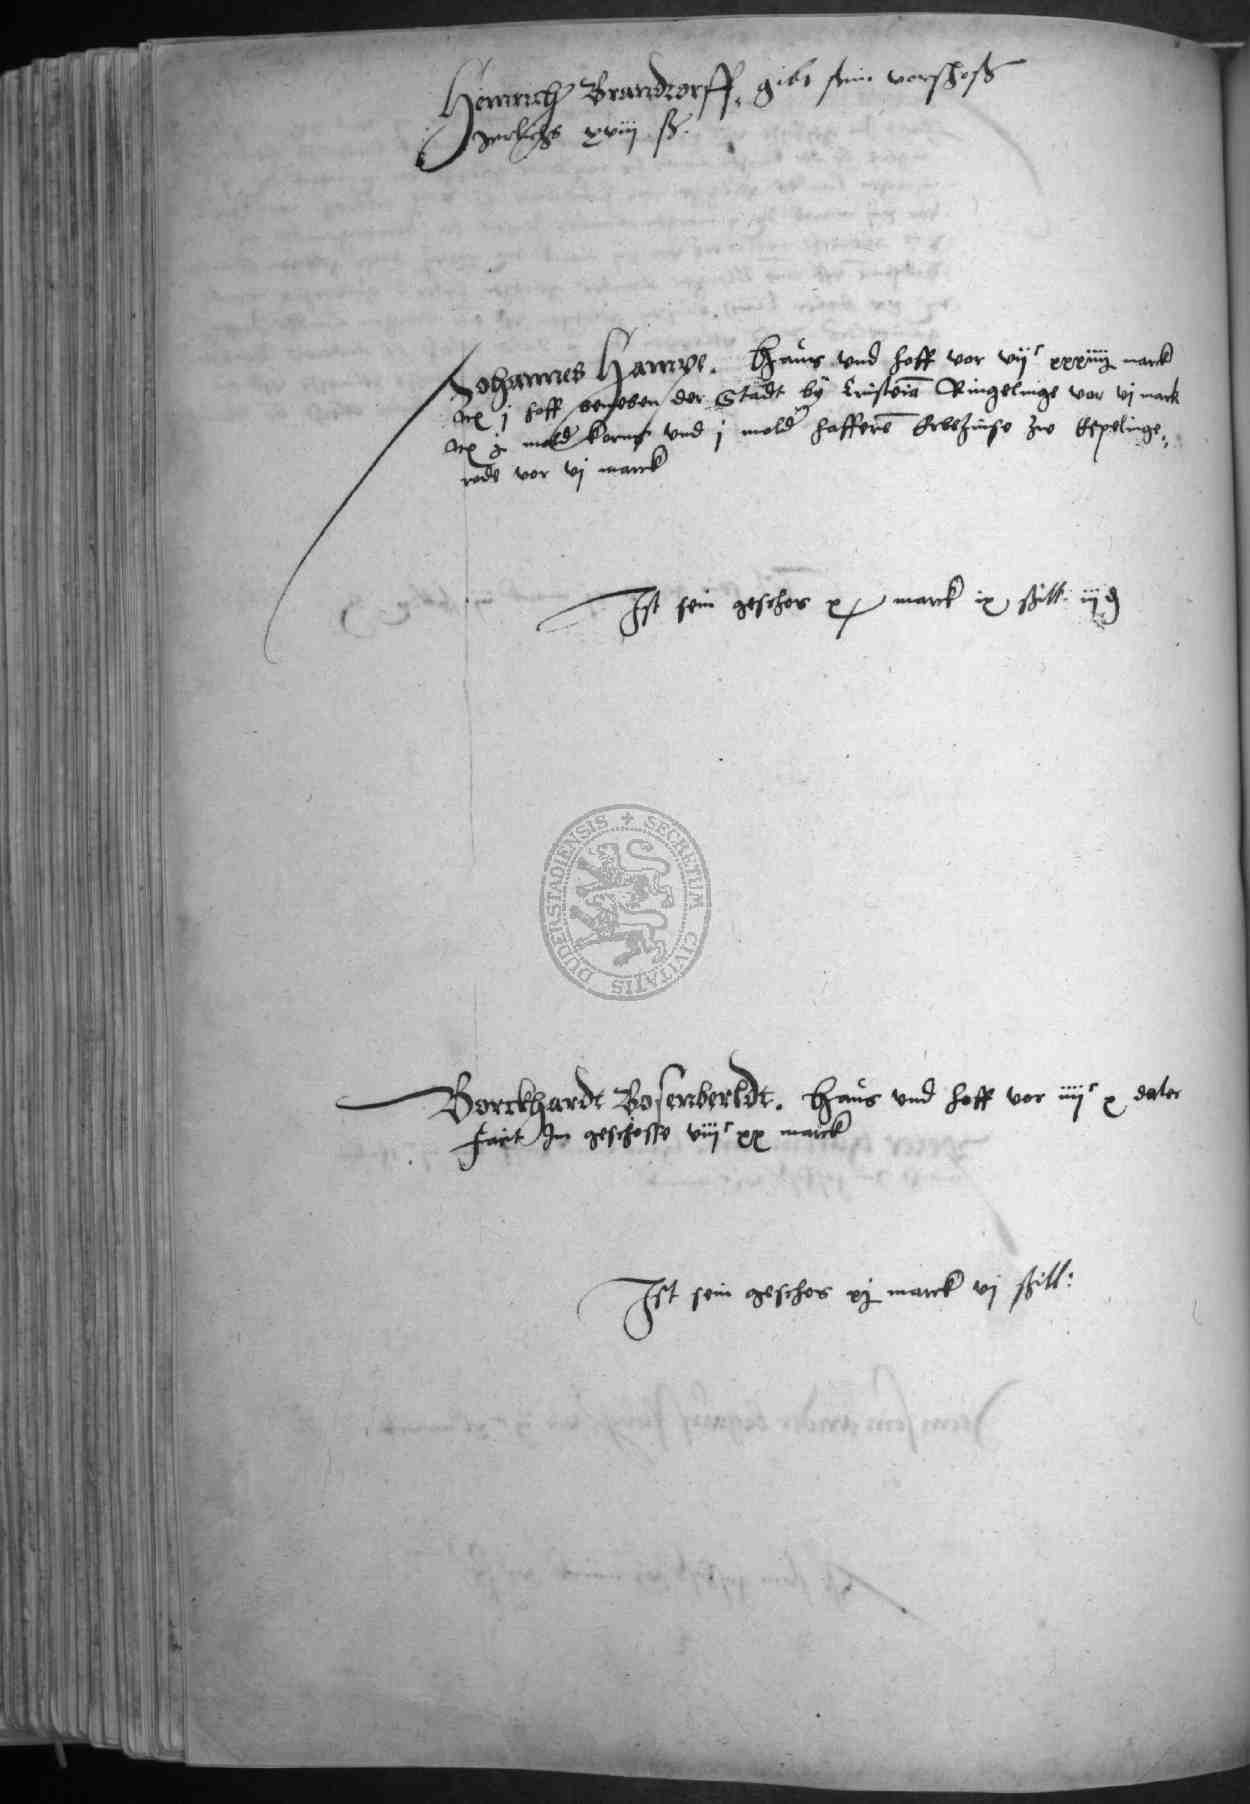 Heinrich Brandtorff, gibt sein vorschoß
Jerlichs xviij ß.
Johannes Hampe. Haus vnd hoff vor vijc xxxiiij marck
Itx j hoff beneben der Stadt by Ringelinge vor vj marck
Itx moldr korns vnd j moldr haffern Erbzinse zu Espelinge,
rode vor vj marck
Ist sein geschos x marck ix ßill: iij d
SECRETUM CIVITATIS DUDERSTADIENSIS
Borckhardt Bosenberldt. Haus vnd hoff vor iiijc x daler
facit In geschosse viijc xx marck
Ist sein geschos xj marck vj ßill: